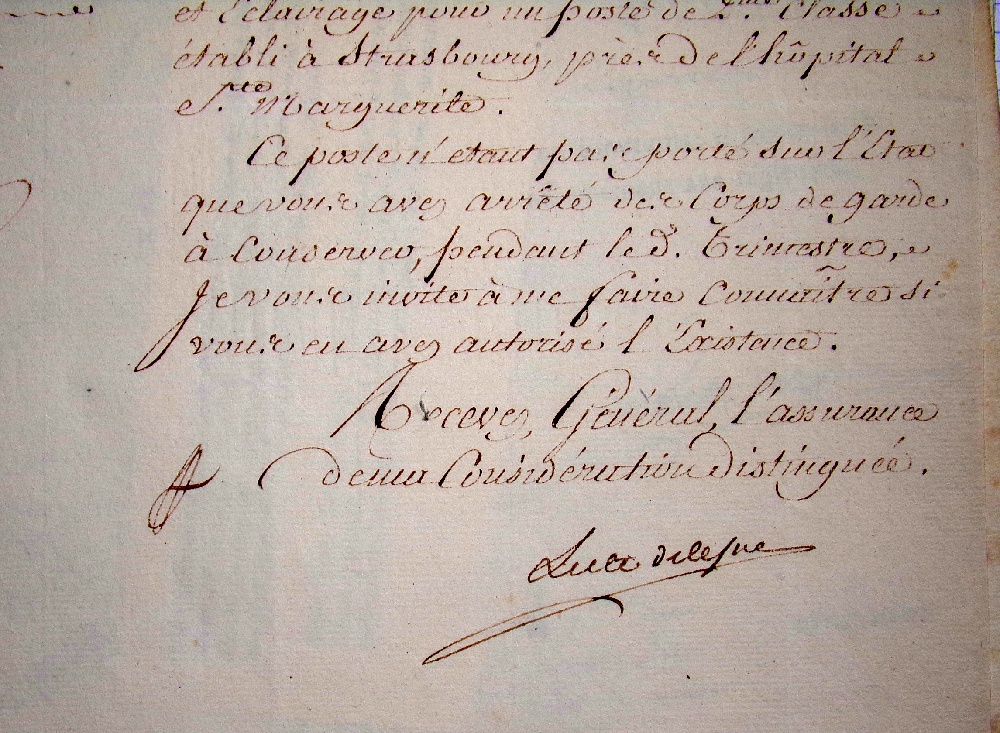 et l'éclairage pour un poste de 2.me Classe
établi à Strasbourg, près de l'hôpital
S.te Marguerite.
Ce poste n'etant pas porté sur l'Etat
que vous avez arrêté des Corps de garde
à Conserver, pendant le d.t Trimestre,
Je vous invite à me faire Connaître si
vous en avez autorisé l'Existence.
Recevez Général, l'assurance
de ma Considération distinguée.